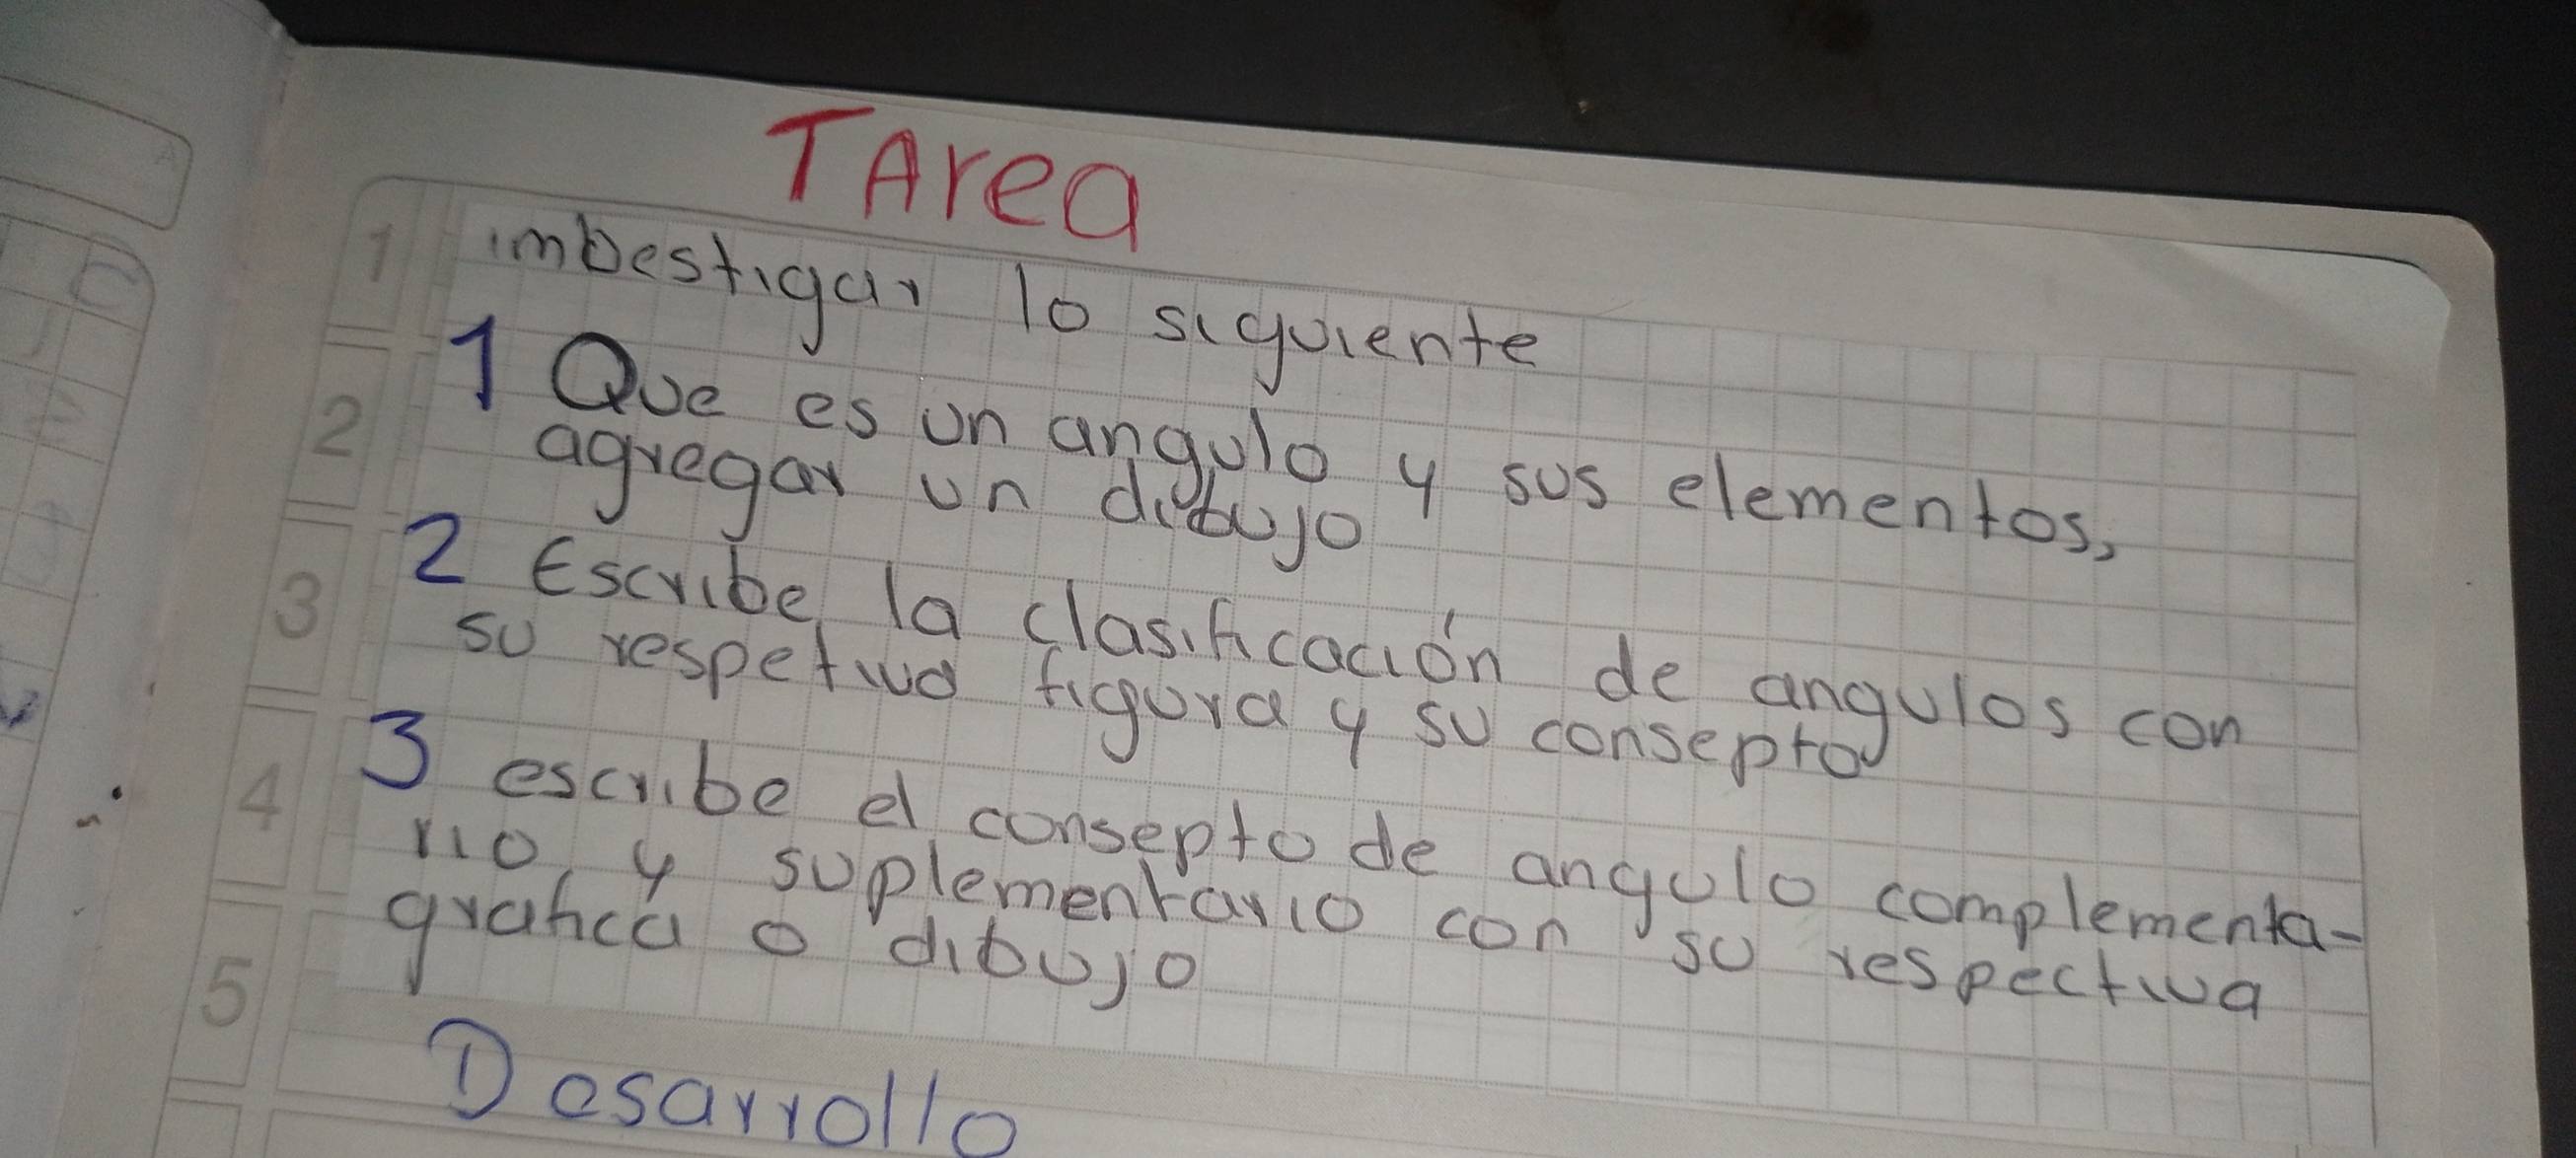 TArea
imbestigar lo siguiente
1 Que es un angulo y sus elementos,
agregar un dibujo
2 Escribe la clasificación de angulos con
su respetiva figura y su consepto
3 escribe el consepto de angulo complementa-
rio y suplementario con su respectiva
grafica o dibujo
Desarrollo
1
2
3
4
5